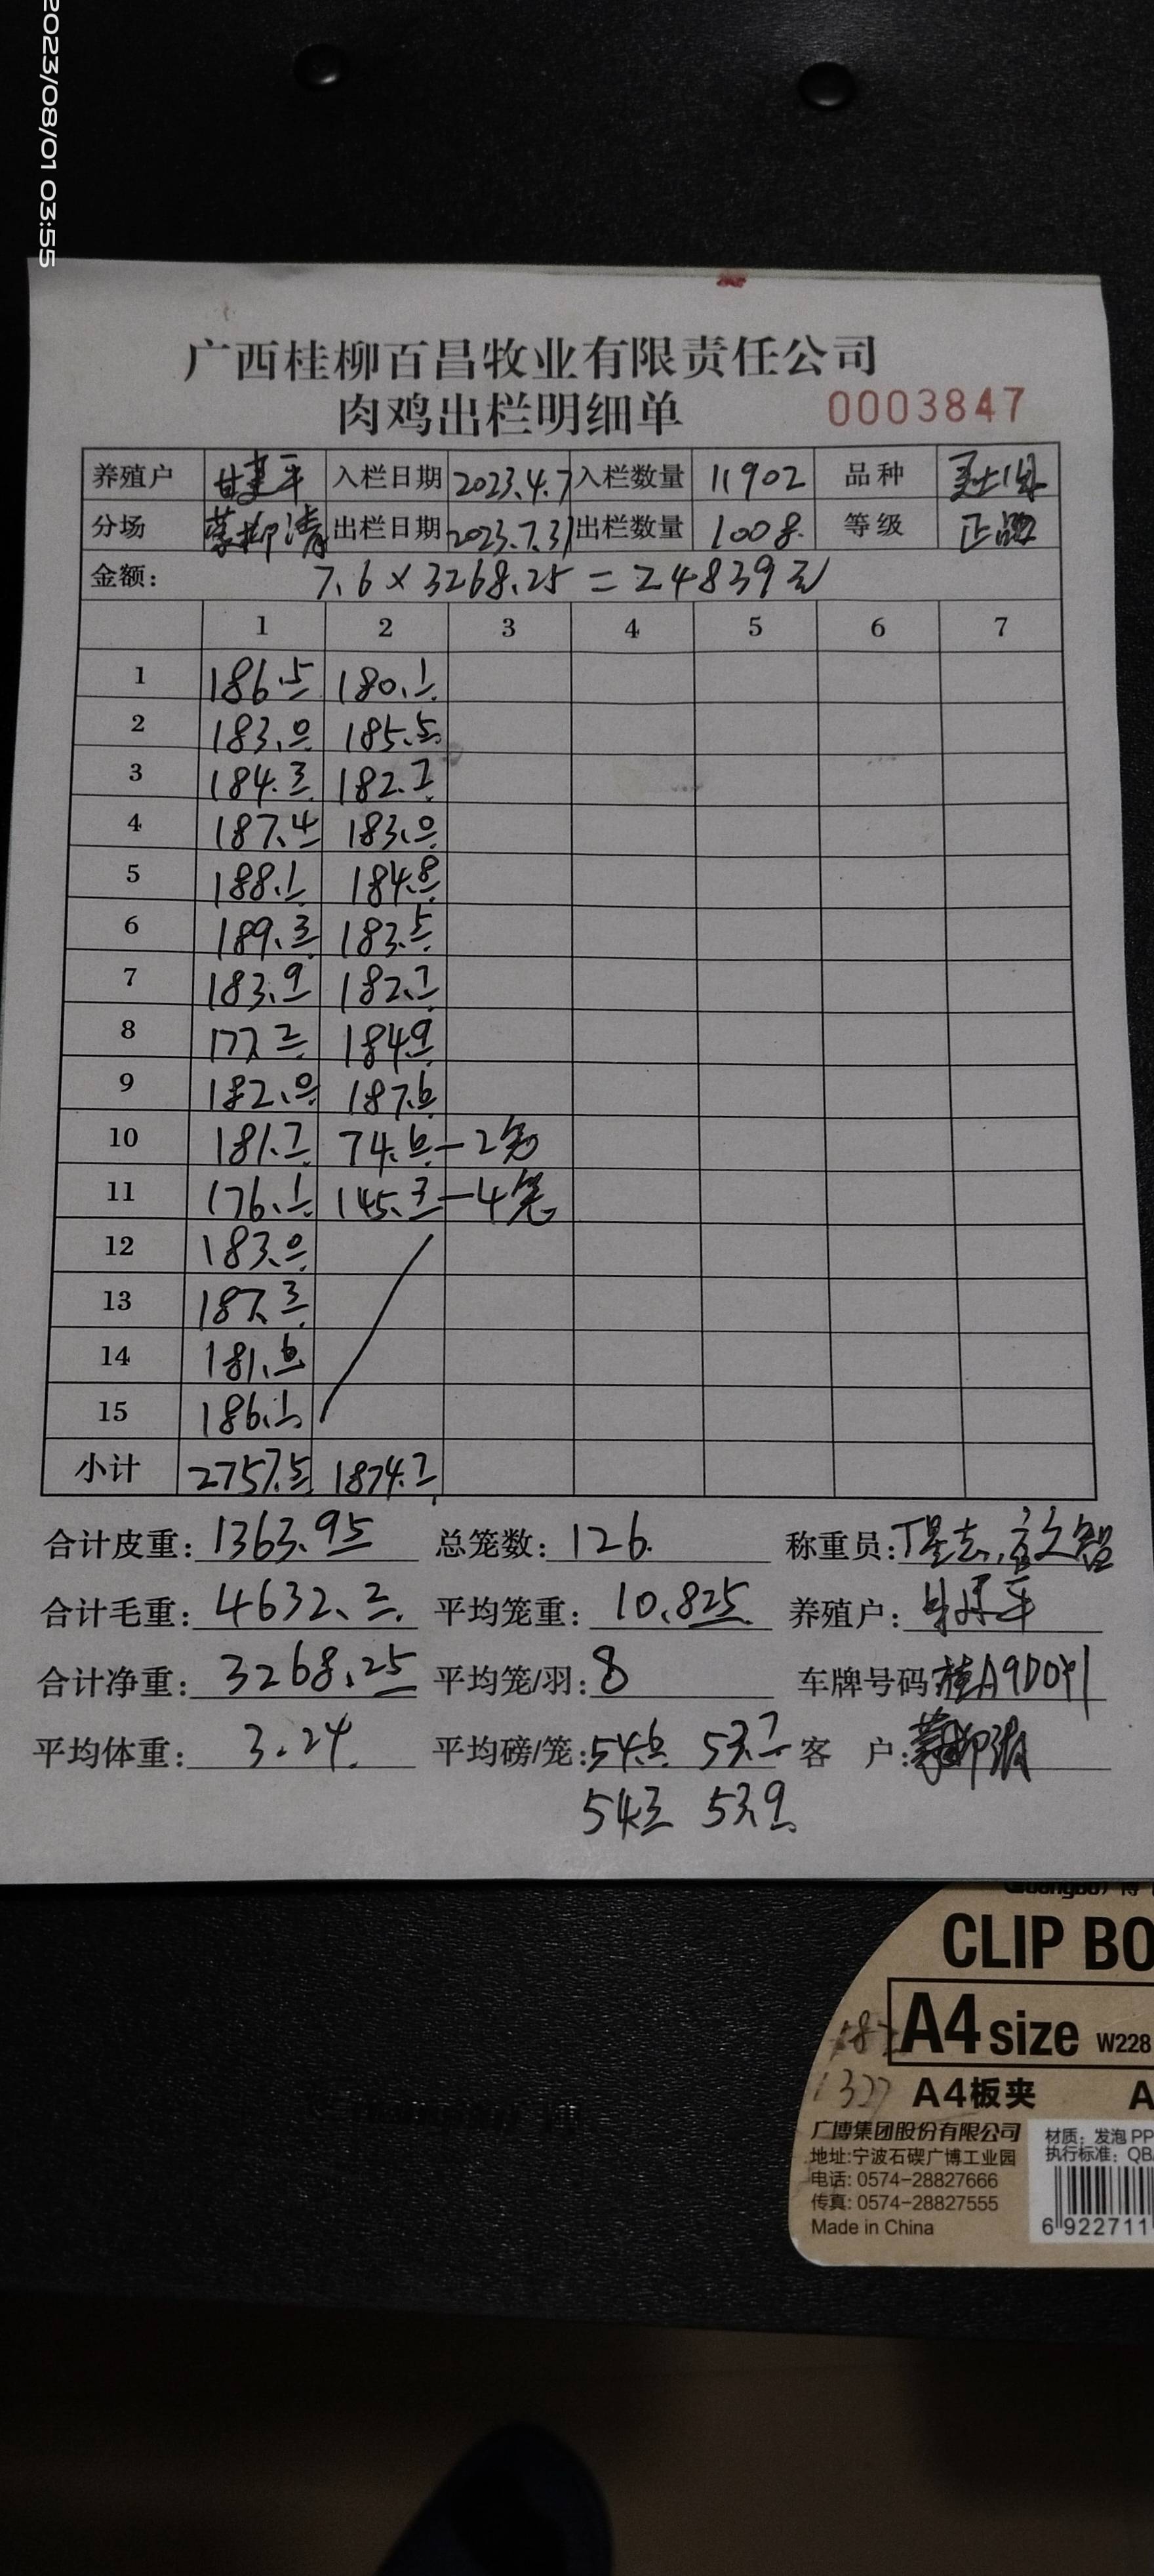 2023/08/01 03:55
广西桂柳百昌牧业有限责任公司
肉鸡出栏明细单 0003847
养殖户 甘建平 入栏日期 2023.4.7 入栏数量 11902 品种
分场 蒙柳清 出栏日期 2023.7.31 出栏数量 1008. 等级 正品
金额: 7.6×3268.25=24839元
1 2 3 4 5 6 7
1 186.5 180.1
2 183.0 185.5
3 184.3 182.7
4 187.4 183.0
5 188.1 184.8
6 189.3 183.5
7 183.9 182.7
8 177.2 184.9
9 182.0 187.6
10 181.7 74.6-2笼
11 176.1 145.3-4笼
12 183.0
13 187.3
14 181.6
15 186.1
小计 2757.5 1874.7
合计皮重: 1363.95 总笼数: 126. 称重员:
合计毛重: 4632.2 平均笼重: 10.825 养殖户: 甘建平
合计净重: 3268.25 平均笼/羽: 8 车牌号码 桂A9D091
平均体重: 3.24. 平均磅/笼: 54.6 53.7 客 户: 蒙柳清
54.3 53.9
CLIP BO
A4 size W228
A4板夹 A
广博集团股份有限公司
地址:宁波石碶广博工业园
电话: 0574-28827666
传真: 0574-28827555
Made in China
材质: 发泡 PP
执行标准: QB
6 922711